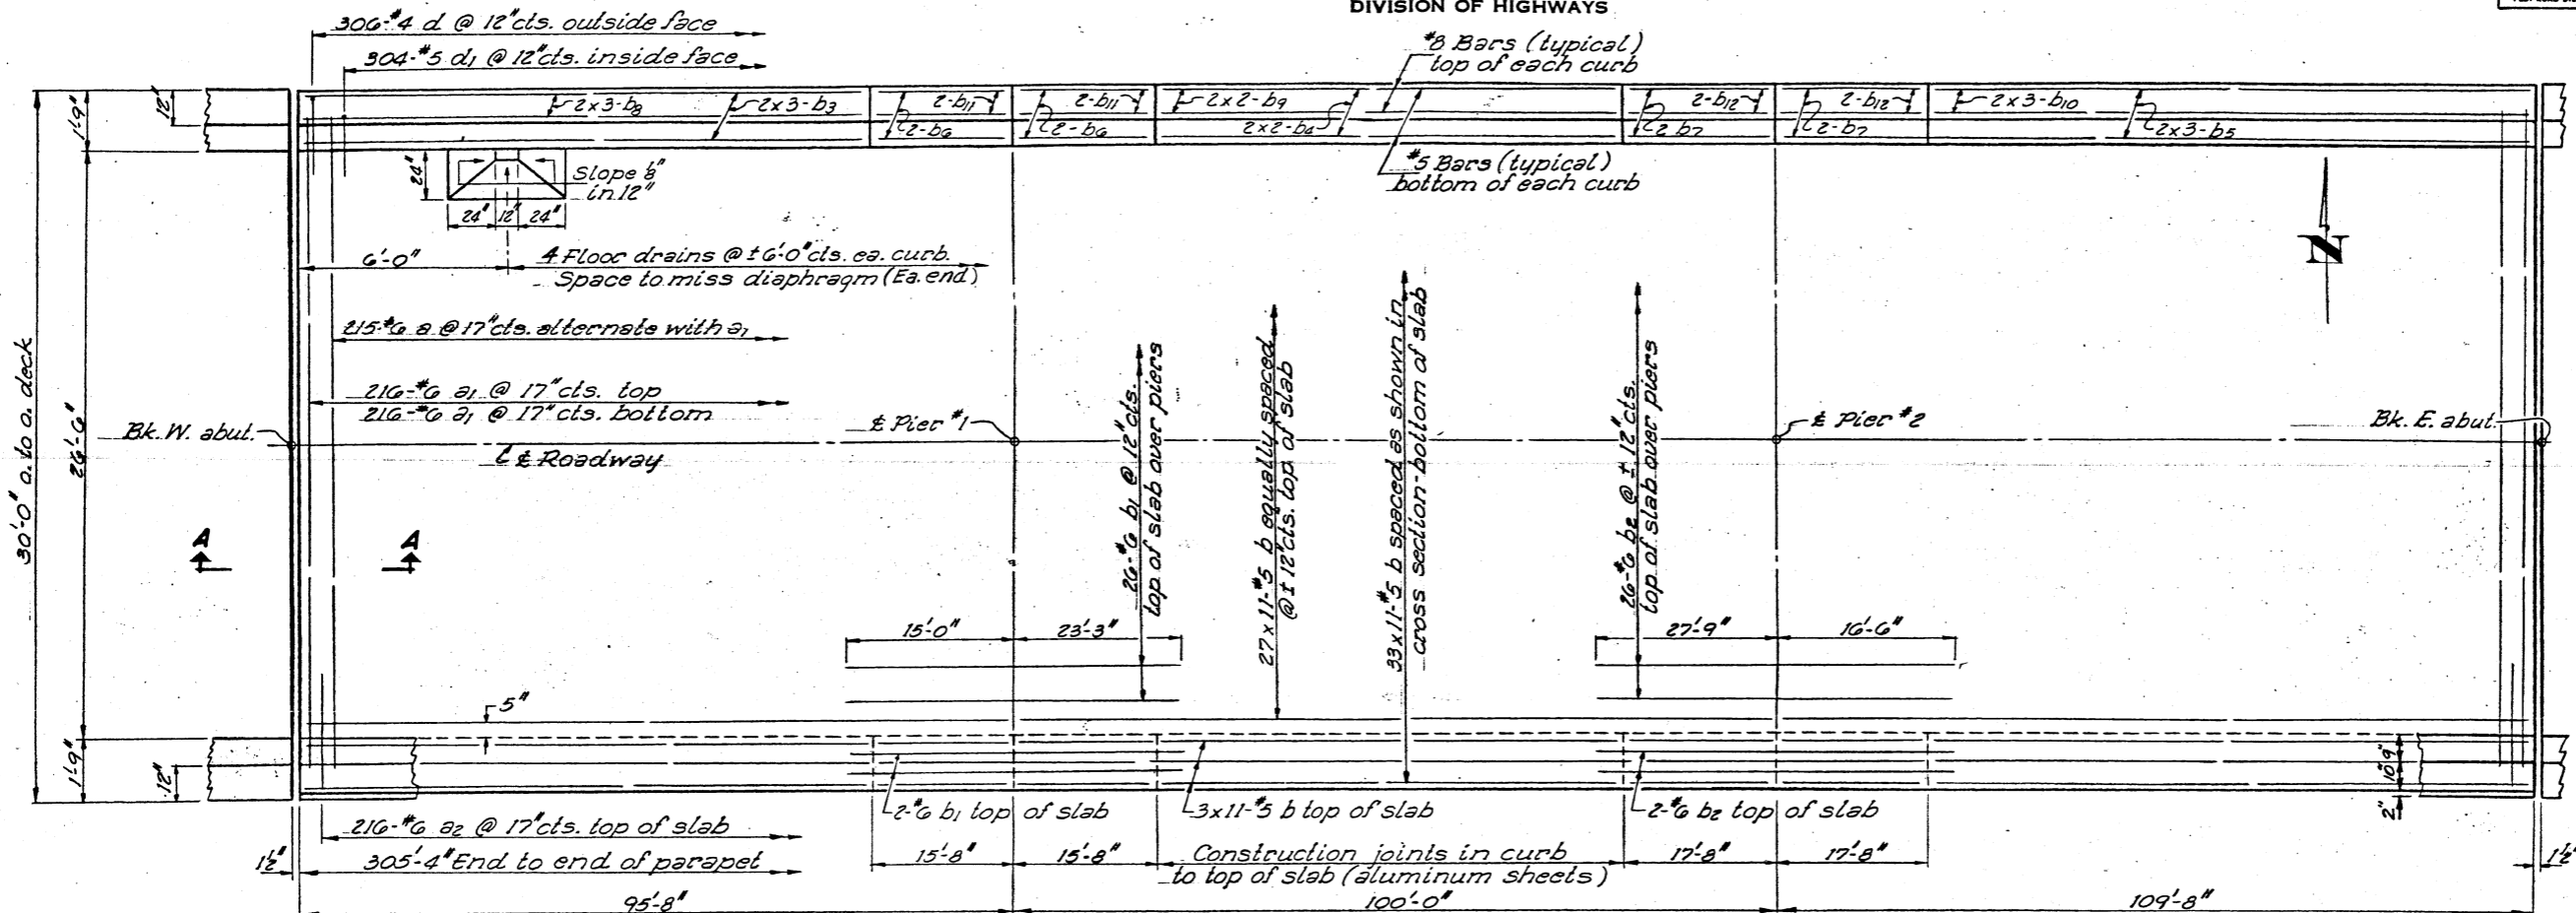 DIVISION OF HIGHWAYS
306-#4 d @ 12"cts. outside face
304-#5 d1 @ 12"cts. inside face
#8 Bars (typical)
top of each curb
12"
1'-9"
2x3-b8
2x3-b3
2-b11
2-b11
2x2-b9
2-b12
2-b12
2x3-b10
2-b6
2-b6
2x2-b4
2 b7
2-b7
2x3-b5
#5 Bars (typical)
bottom of each curb
24"
Slope 1/8"
in 12"
24"
12"
24"
N
6'-0"
4 Floor drains @ ±6'-0"cts. ea. curb.
Space to miss diaphragm (Ea. end)
215-#6 a @ 17"cts. alternate with a1
216-#6 a1 @ 17"cts. top
216-#6 a1 @ 17"cts. bottom
30'-0" o. to o. deck
26'-6"
Bk. W. abut.
℄ Pier #1
℄ Pier #2
Bk. E. abut.
℄ Roadway
26-#6 b1 @ 12"cts.
top of slab over piers
27x11-#5 b equally spaced
@ ± 12"cts. top of slab
33x11-#5 b spaced as shown in
cross section-bottom of slab
26-#6 b2 @ ± 12"cts.
top of slab over piers
A
A
15'-0"
23'-3"
27'-9"
16'-6"
5"
1'-9"
12"
10"
9"
2"
2-#6 b1 top of slab
3x11-#5 b top of slab
2-#6 b2 top of slab
216-#6 a2 @ 17"cts. top of slab
1½"
305'-4" End to end of parapet
15'-8"
15'-8"
Construction joints in curb
to top of slab (aluminum sheets)
17'-8"
17'-8"
1½"
95'-8"
100'-0"
109'-8"